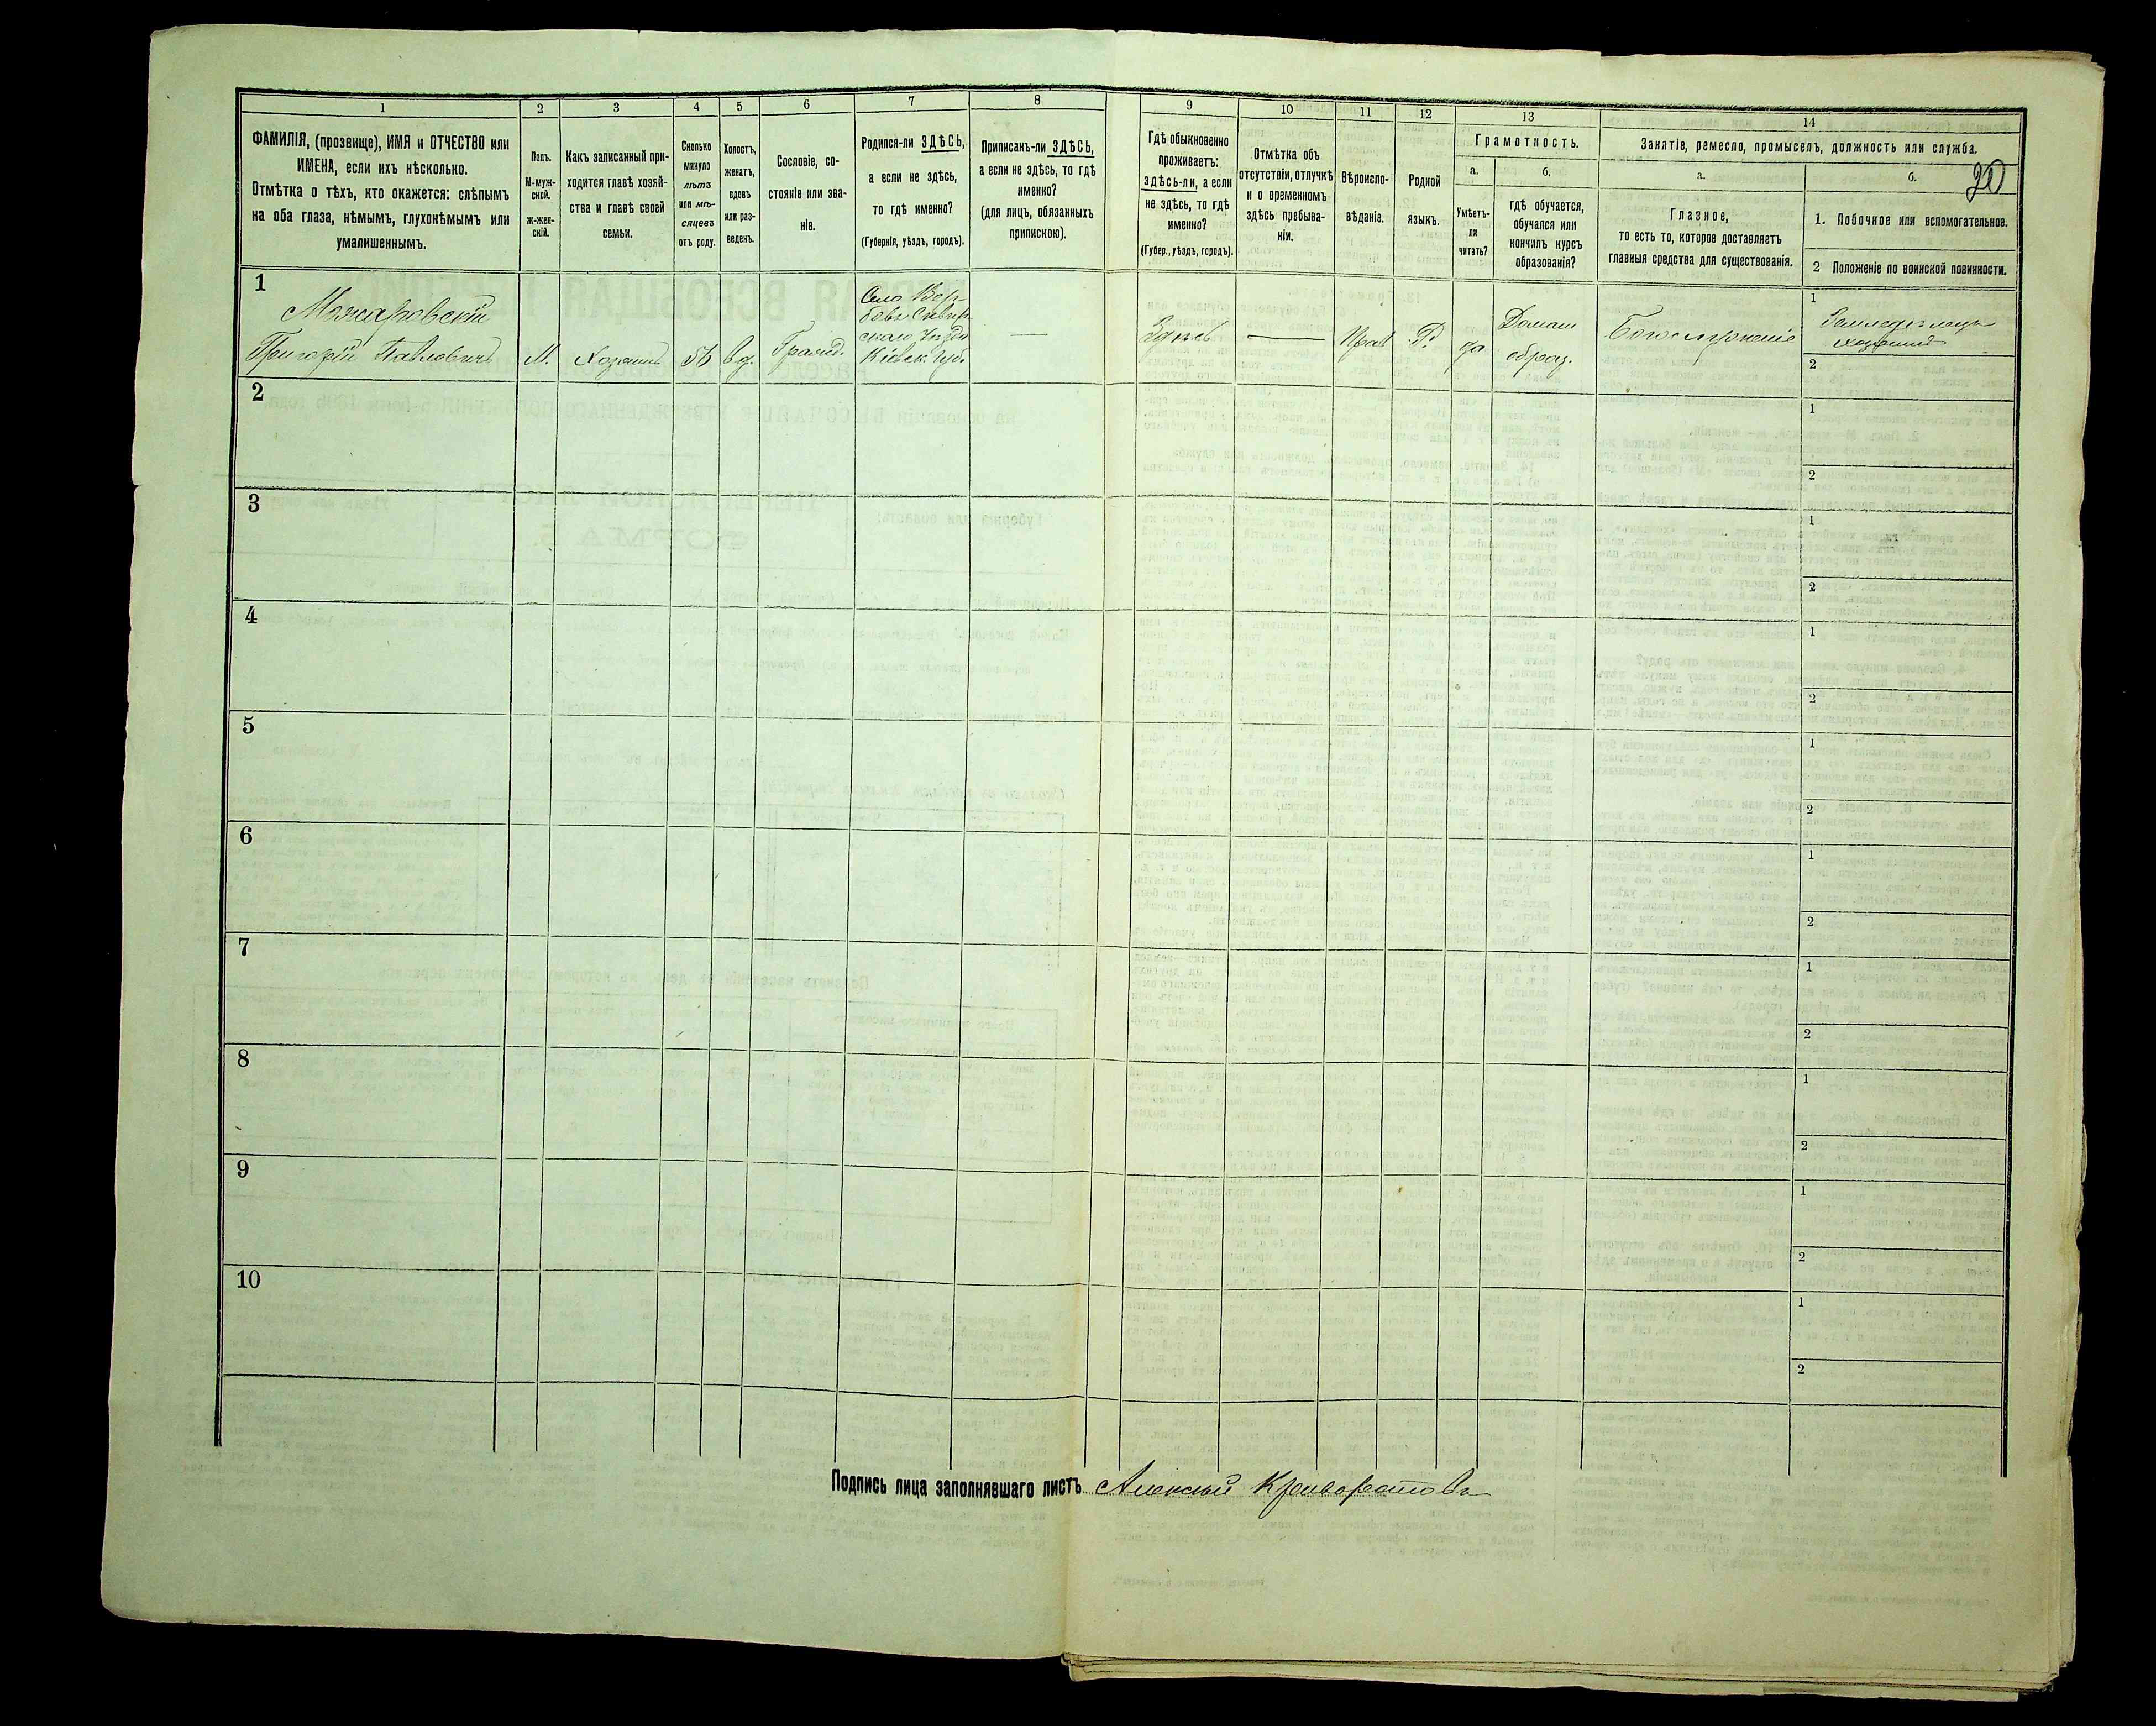 1 2 3 4 5 6 7 8 9 10 11 12 13 14
ФАМИЛІЯ, (прозвище), ИМЯ и ОТЧЕСТВО или
ИМЕНА, если ихъ нѣсколько.
Отмѣтка о тѣхъ, кто окажется: слѣпымъ
на оба глаза, нѣмымъ, глухонѣмымъ или
умалишеннымъ.
Полъ.
М-муж-
ской.
Ж-жен-
скій.
Какъ записанный при-
ходится главѣ хозяй-
ства и главѣ своей
семьи.
Сколько
минуло
лѣтъ
или мѣ-
сяцевъ
отъ роду.
Холостъ,
женатъ,
вдовъ
или раз-
веденъ.
Сословіе, со-
стояніе или зва-
ніе.
Родился-ли ЗДѢСЬ,
а если не здѣсь,
то гдѣ именно?
(Губернія, уѣздъ, городъ).
Приписанъ-ли ЗДѢСЬ,
а если не здѣсь, то гдѣ
именно?
(для лицъ, обязанныхъ
припискою).
Гдѣ обыкновенно
проживаетъ:
ЗДѢСЬ-ли, а если
не здѣсь, то гдѣ
именно?
(Губер., уѣздъ, городъ).
Отмѣтка объ
отсутствіи, отлучкѣ
и о временномъ
здѣсь пребыва-
ніи.
Вѣроиспо-
вѣданіе.
Родной
языкъ.
Грамотность.
а.
Умѣетъ-
ли
читать?
б.
гдѣ обучается,
обучался или
кончилъ курсъ
образованія?
Занятіе, ремесло, промыселъ, должность или служба.
а.
Главное,
то есть то, которое доставляетъ
главныя средства для существованія.
б.
20
1. Побочное или вспомогательное.
2 Положеніе по воинской повинности.
1
Можаровскій
Григорій Павловичъ
М.
Хозяинъ
вд.
Гражд.
Село Вер-
Кіевск. Губ.
—
—
Прав
Р.
да
Домаш
образ.
Богослуженіе
1
Земледѣлецъ
хозяинъ
2
2
1
2
3
1
2
4
1
2
5
1
2
6
1
2
7
1
2
8
1
2
9
1
2
10
1
2
Подпись лица заполнявшаго листъ Алексѣй